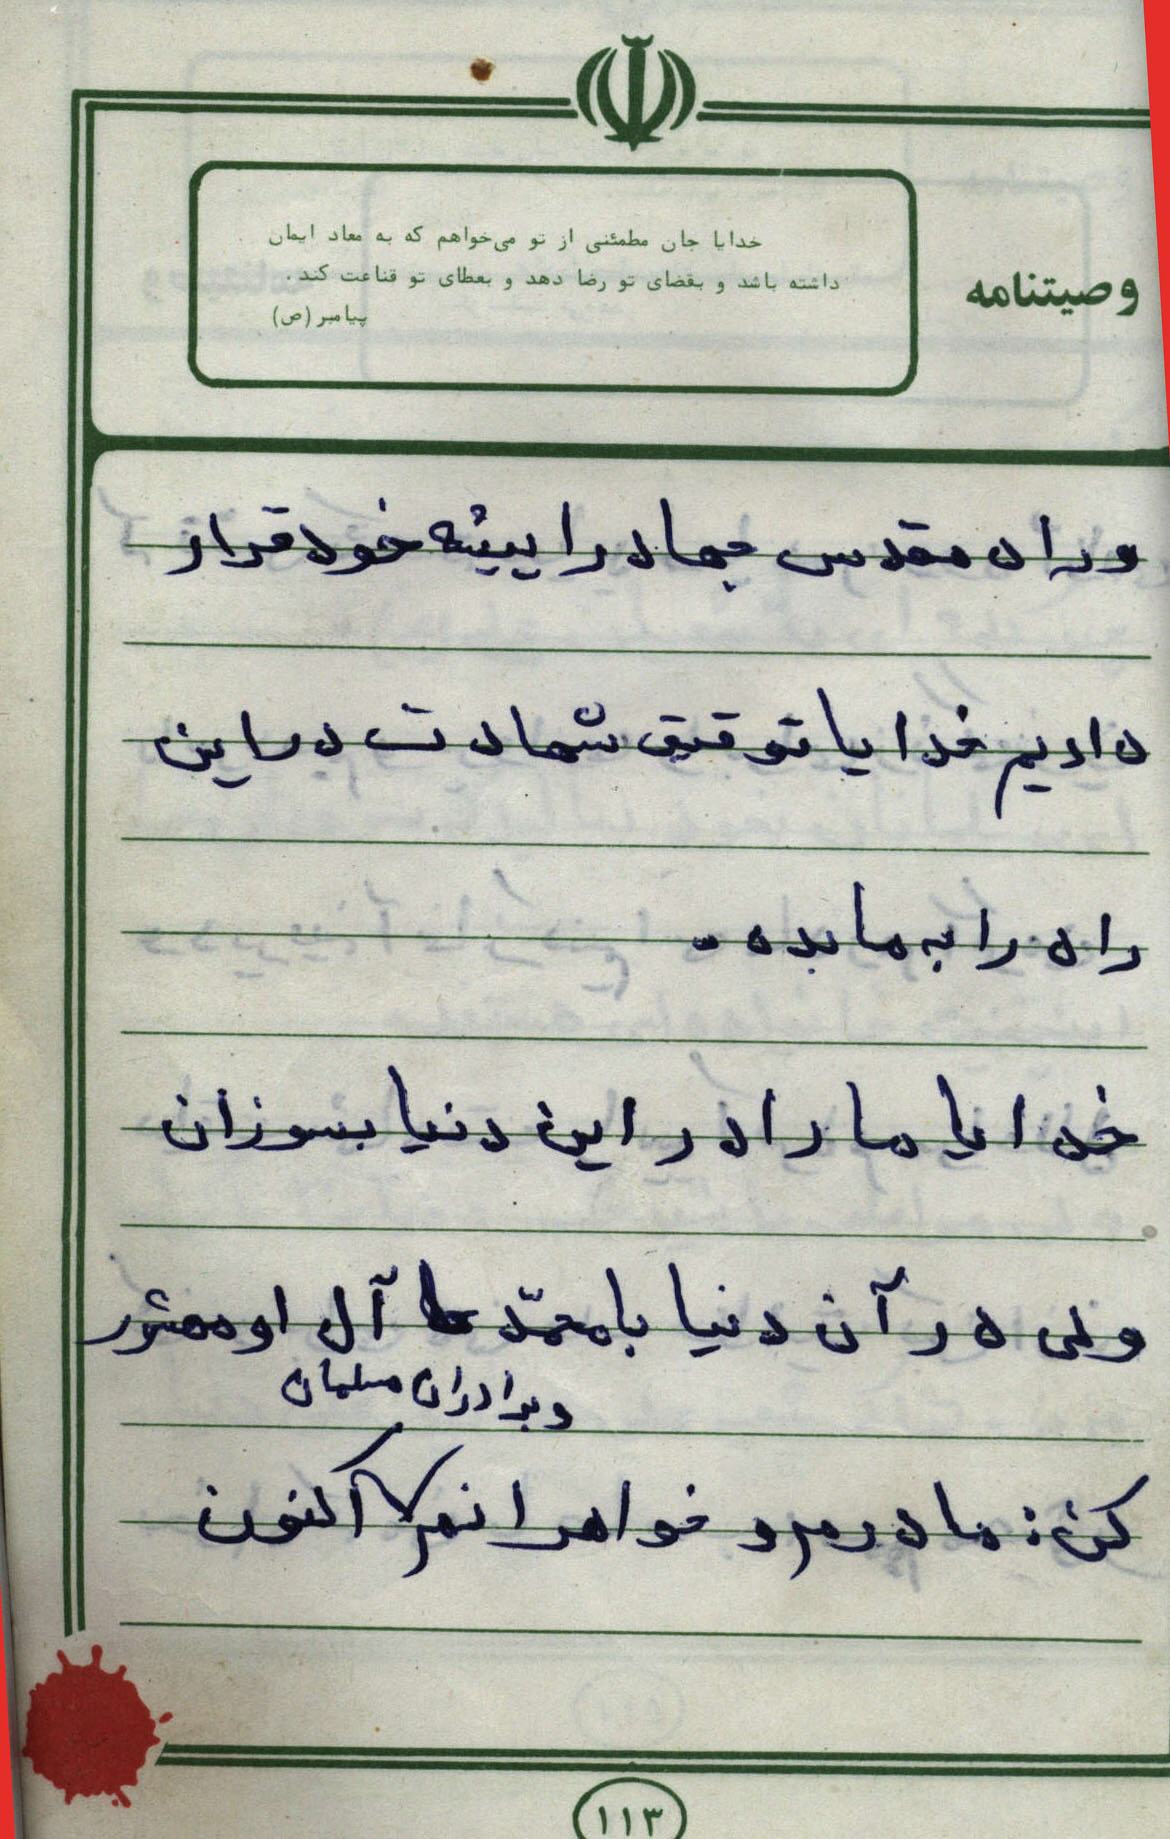 خدایا جان مطمئنی از تو می‌خواهم که به معاد ایمان
داشته باشد و بقضای تو رضا دهد و بعطای تو قناعت کند.
پیامبر (ص)
وصیتنامه
و راه مقدس جهاد را پیشه خود قرار
دادیم خدایا توفیق شهادت در این
راه را به ما بده .
خدایا ما را در این دنیا بسوزان
ولی در آن دنیا با محمّد آل او محشور
و برادران مسلمان
کن: مادرم و خواهرانم اکنون
۱۱۳